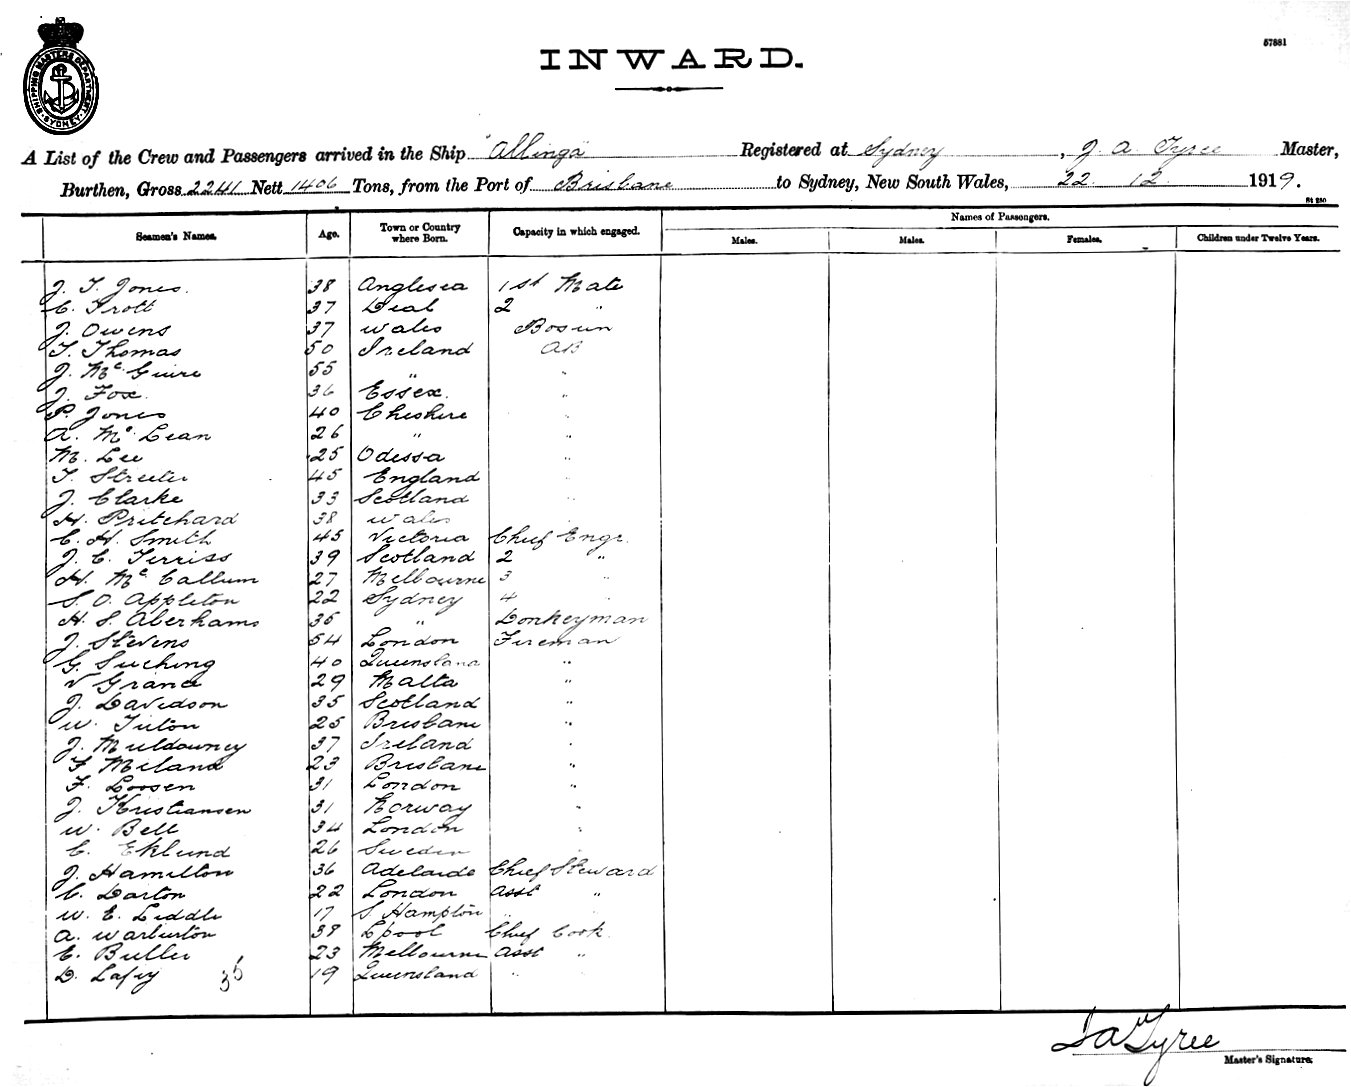 SHIPPING MASTERS DEPARTMENT SYDNEY
57881
INWARD.
A List of the Crew and Passengers arrived in the Ship "Allinga" Registered at Sydney, J. A. Tyree Master,
Burthen, Gross 2241 Nett 1406 Tons, from the Port of Brisbane to Sydney, New South Wales, 22. 12. 1919.
Seamen's Names. Age. Town or Country where Born. Capacity in which engaged. Names of Passengers.
Males. Males. Females. Children under Twelve Years.
J. T. Jones. 38 Anglesea 1st Mate
C. Trott 37 Deal 2 "
J. Owens 37 Wales Bosun
T. Thomas 50 Ireland AB
J. McGuire 55 " "
J. Fox. 36 Essex. "
P. Jones 40 Cheshire "
A. McLean 26 " "
M. Lee 25 Odessa "
T. Streeter 45 England "
J. Clarke 33 Scotland "
H. Pritchard 38 Wales
C. H. Smith 45 Victoria Chief Engr.
J. C. Ferriss 39 Scotland 2 "
H. McCallum 27 Melbourne 3 "
S. O. Appleton 22 Sydney 4 "
H. S. Aberhams 35 " Donkeyman
J. Stevens 54 London Fireman
G. Suching 40 Queensland "
V Grance 29 Malta "
J. Davidson 35 Scotland "
W. Tuton 25 Brisbane "
J. Muldowney 37 Ireland "
F. Meland 23 Brisbane "
F. Loosen 31 London "
J. Kristiansen 31 Norway "
W. Bell 34 London "
C. Eklund 26 Sweden "
J. Hamilton 36 Adelaide Chief Steward
C. Darton 22 London Asst "
W. E. Liddle 17 S Hampton " "
A. Warburton 38 Lpool Chief Cook
E. Butler 23 Melbourne Asst "
D. Lafey 19 Queensland "
35
J A Tyree
Master's Signature.